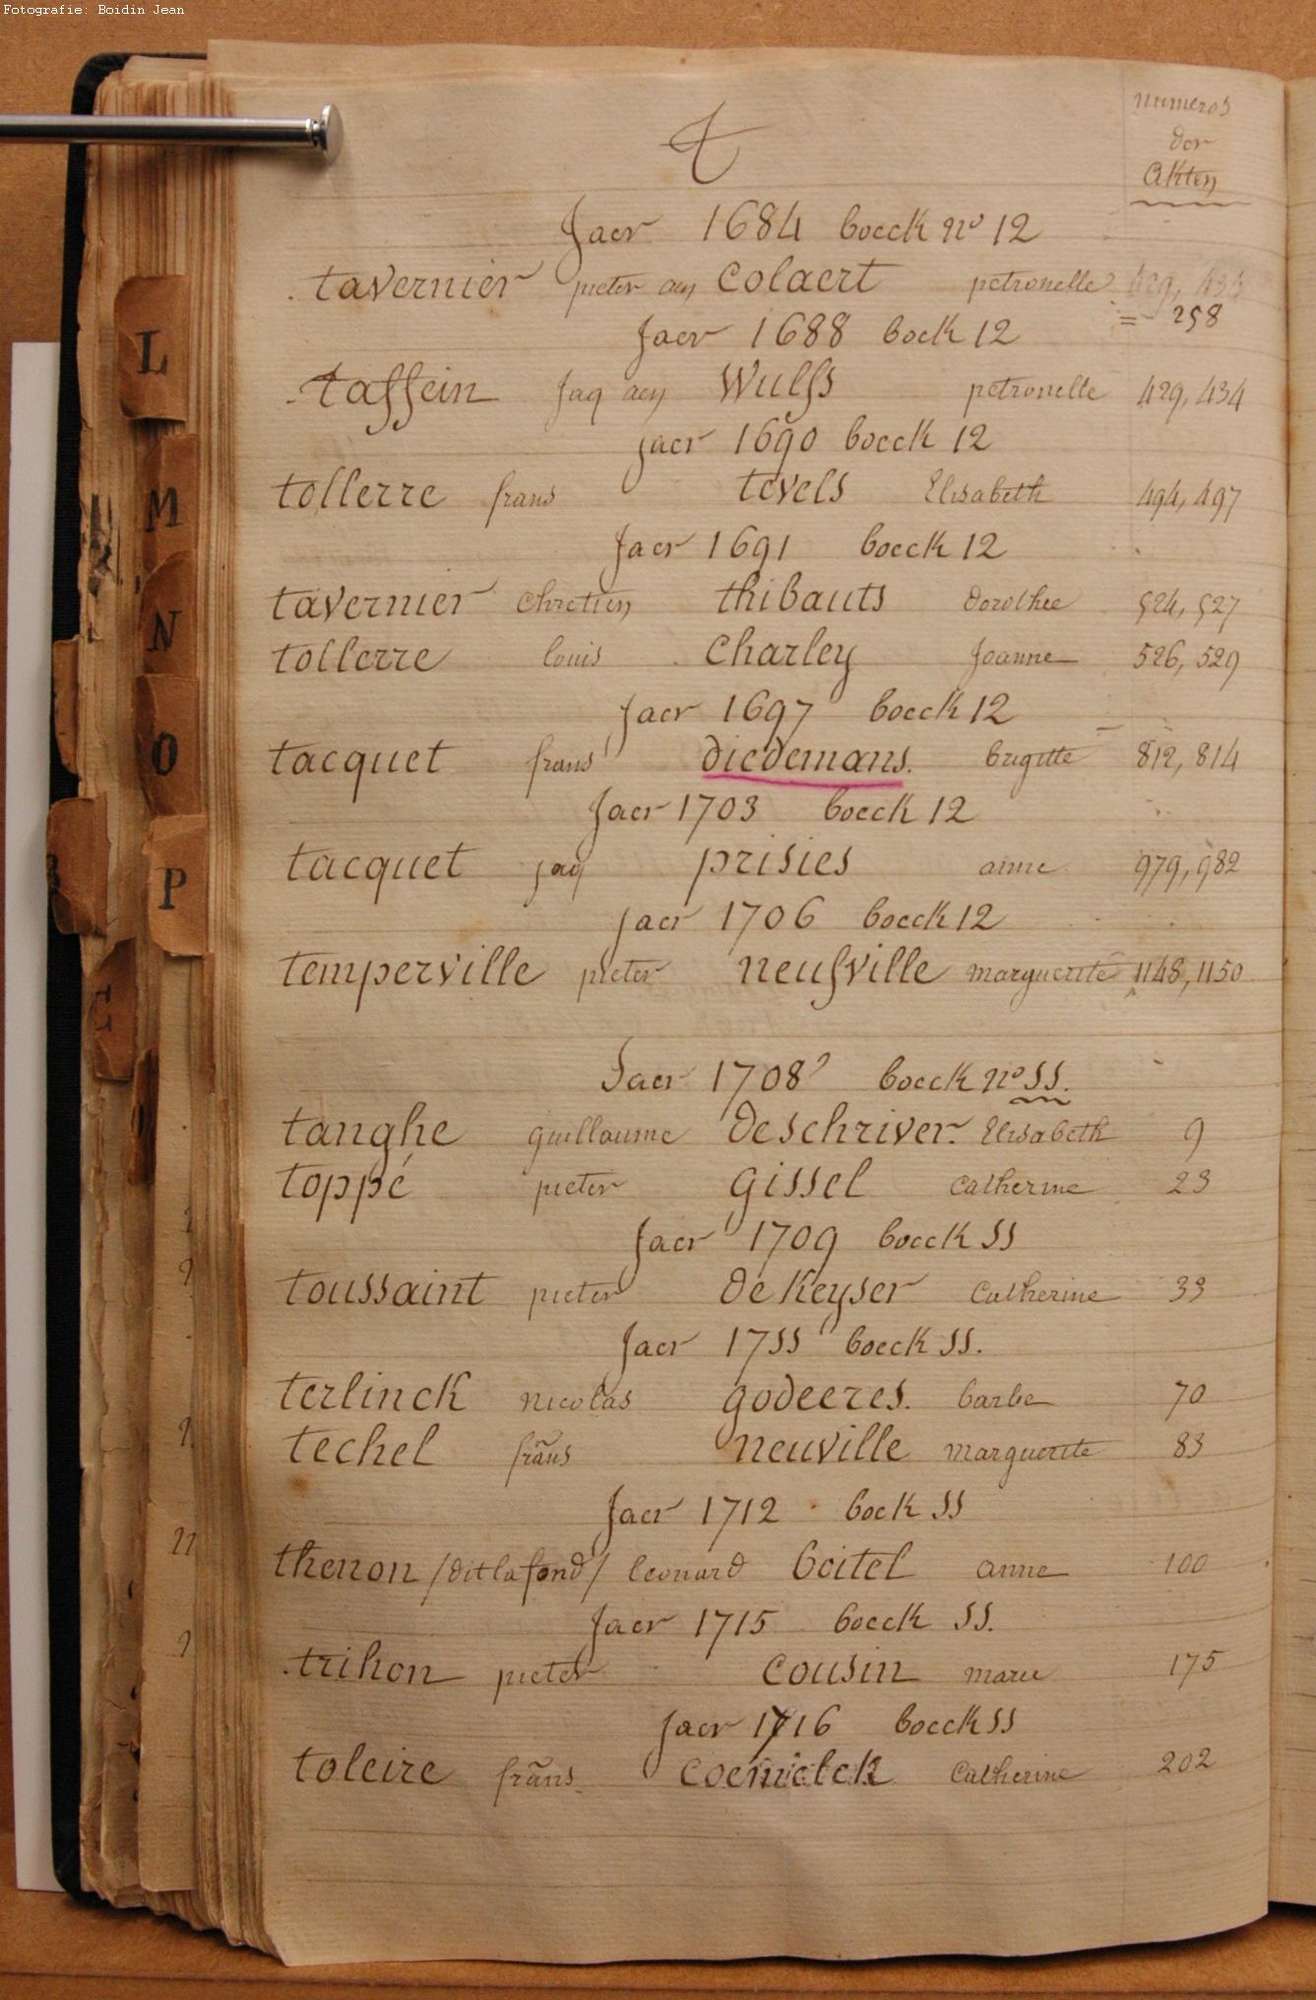 Fotografie: Boidin Jean
T
numeros
der
Akten
Jaer 1684 boeck no 12
tavernier pieter aen Colaert petronelle
= 258
Jaer 1688 bock 12
taffein Jaq aen Wulfs petronelle 429, 434
jaer 1690 boeck 12
tollerre frans tevels Elisabeth 494, 497
Jaer 1691 boeck 12
tavernier chretien thibauts dorothee 524, 527
tollerre louis Charley Joanne 526, 529
Jaer 1697 boeck 12
tacquet frans diedemans. brigitte 812, 814
Jaer 1703 boeck 12
tacquet jaq prisies anne 979, 982
jaer 1706 boeck 12
temperville pieter neufville marguerite 1148, 1150
Jaer 1708 boeck no SS.
tanghe guillaume deschriver. Elisabeth 9
toppé pieter gissel catherine 23
Jaer 1709 boeck SS
toussaint pieter de Keyser Catherine 33
Jaer 17SS boeck SS.
terlinck nicolas godeeres. barbe 70
techel frans neuville marguerite 83
Jaer 1712 bock SS
thenon /dit lafond/ leonard boitel anne 100
Jaer 1715 boeck SS.
trihon pieter cousin marie 175
Jaer 1716 boeck SS
toleire frans Catherine 202
L
M
N
O
P
E